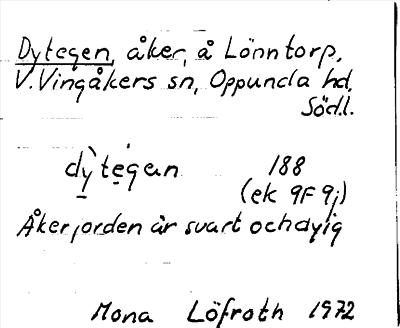 Dytegen, åker, å Lönntorp,
V. Vingåkers sn, Oppunda hd,
Södl.
dỳ̱tė̱gan 188
(ek 9F 9j)
Åkerjorden är svart och dyig
Mona Löfroth 1972